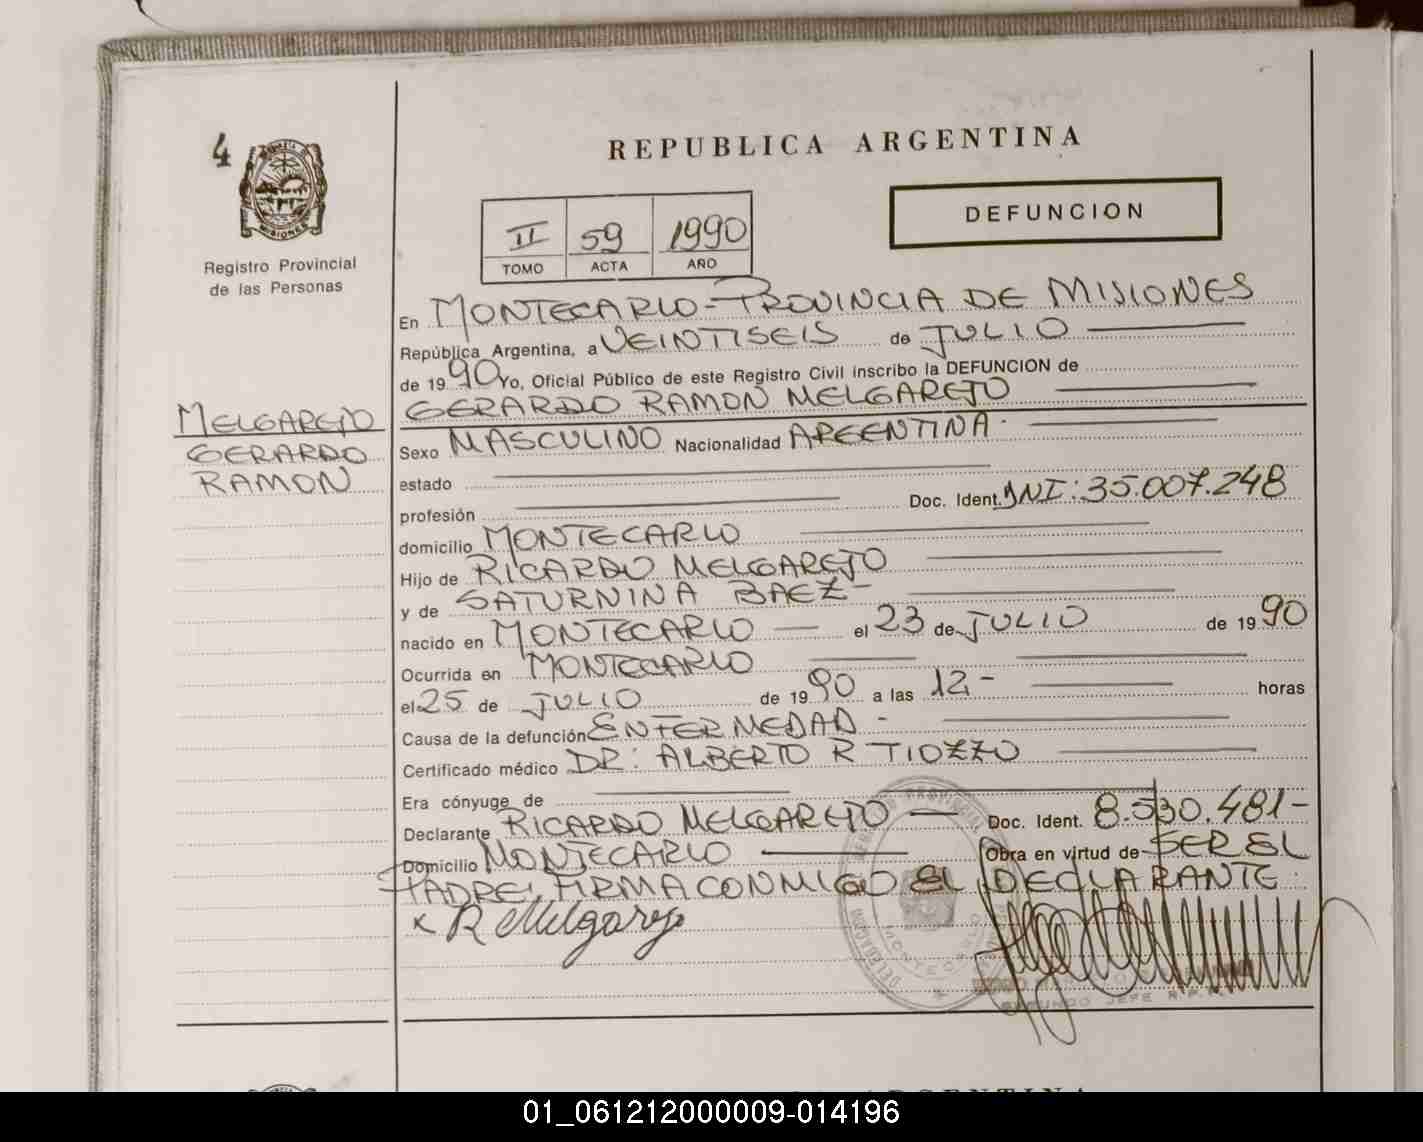 4
REPUBLICA ARGENTINA
MISIONES
Registro Provincial
de las Personas
II 59 1990
TOMO ACTA AÑO
DEFUNCION
En MONTECARLO - PROVINCIA DE MISIONES
República Argentina, a VEINTISEIS de JULIO
de 19 90 Yo, Oficial Público de este Registro Civil inscribo la DEFUNCION de
GERARDO RAMON MELGAREJO
MELGAREJO
GERARDO
RAMON
Sexo MASCULINO Nacionalidad ARGENTINA.
estado
profesión Doc. Ident. DNI: 35.007.248
domicilio MONTECARLO
Hijo de RICARDO MELGAREJO
y de SATURNINA BAEZ -
nacido en MONTECARLO — el 23 de JULIO de 19 90
Ocurrida en MONTECARLO
el 25 de JULIO de 19 90 a las 12 - horas
Causa de la defunción ENFERMEDAD -
Certificado médico DR: ALBERTO R TIOZZO
Era cónyuge de
Declarante RICARDO MELGAREJO — Doc. Ident. 8.530.481 -
Domicilio MONTECARLO — Obra en virtud de SER EL
PADRE, FIRMA CONMIGO EL DECLARANTE.
x R Melgarejo
DELEGACION
MONTECARLO
SEGUNDO JEFE R.P.P.
ARGENTINA
01_061212000009-014196